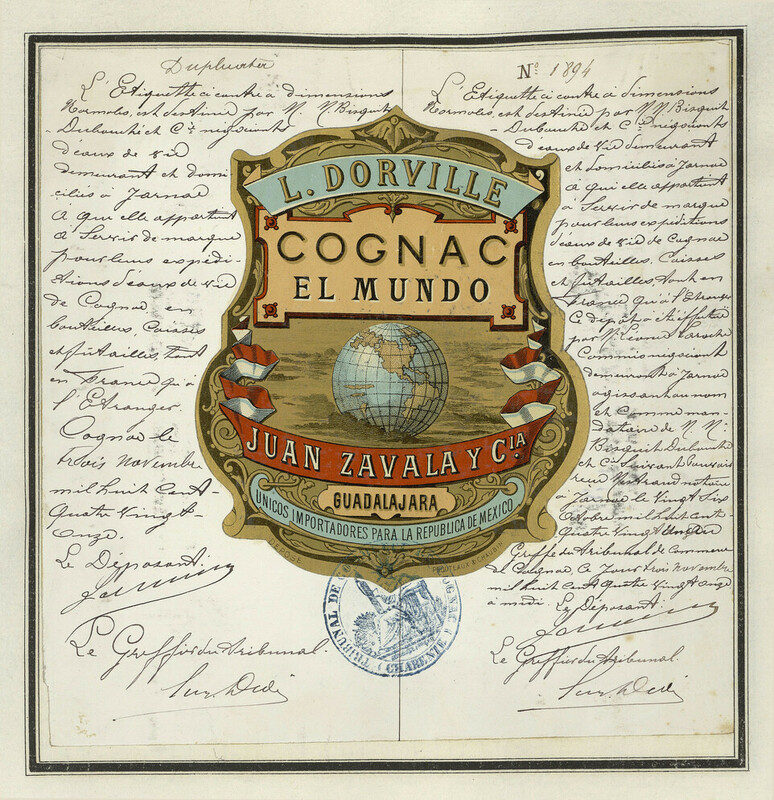 Duplicata
L'Etiquette ci contre à dimensions
Normales, est destinée par M. M. Bisquit
Dubouché et Cie négociants
d'eaux de vie
demeurant et domi
ciliés à Jarnac
à qui elle appartient
à Servir de marque
pour leurs expédi-
tions d'eaux de vie
de Cognac en
bouteilles, Caisses
et futailles, tant
en France qu'à
l'Etranger.
Cognac le
trois novembre
mil huit cent
Quatre Vingt
Onze.
Le Déposant.
Le Greffier du tribunal.
No 1894
L'Etiquette ci contre à dimensions
Normales, est destinée par M. M. Bisquit
Dubouché et Cie négociants
d'eaux de vie demeurant
et domiciliés à Jarnac
à qui elle appartient
à Servir de marque
pour leurs expéditions
d'eaux de vie de Cognac
en bouteilles, Caisses
et futailles, tant en
France qu'à l'Etranger
Ce dépôt a été effectué
par M. Léonce Laroche
Commis négociant
demeurant à Jarnac
agissant au nom
et Comme man-
dataire de M. M.
Bisquit Dubouché
et Cie Suivant pouvoir
reçu notaire
à Jarnac le Vingt Six
octobre mil huit cent
Quatre Vingt Onze
Greffe du tribunal de Commerce
de Cognac Ce Jour trois novembre
mil huit cent Quatre Vingt Onze
à midi. Le Déposant.
Le Greffier du tribunal.
L. DORVILLE
COGNAC
EL MUNDO
JUAN ZAVALA Y CIA
GUADALAJARA
UNICOS IMPORTADORES PARA LA REPUBLICA DE MEXICO
DÉPOSÉ
TRIBUNAL DE
COGNAC
(CHARENTE)